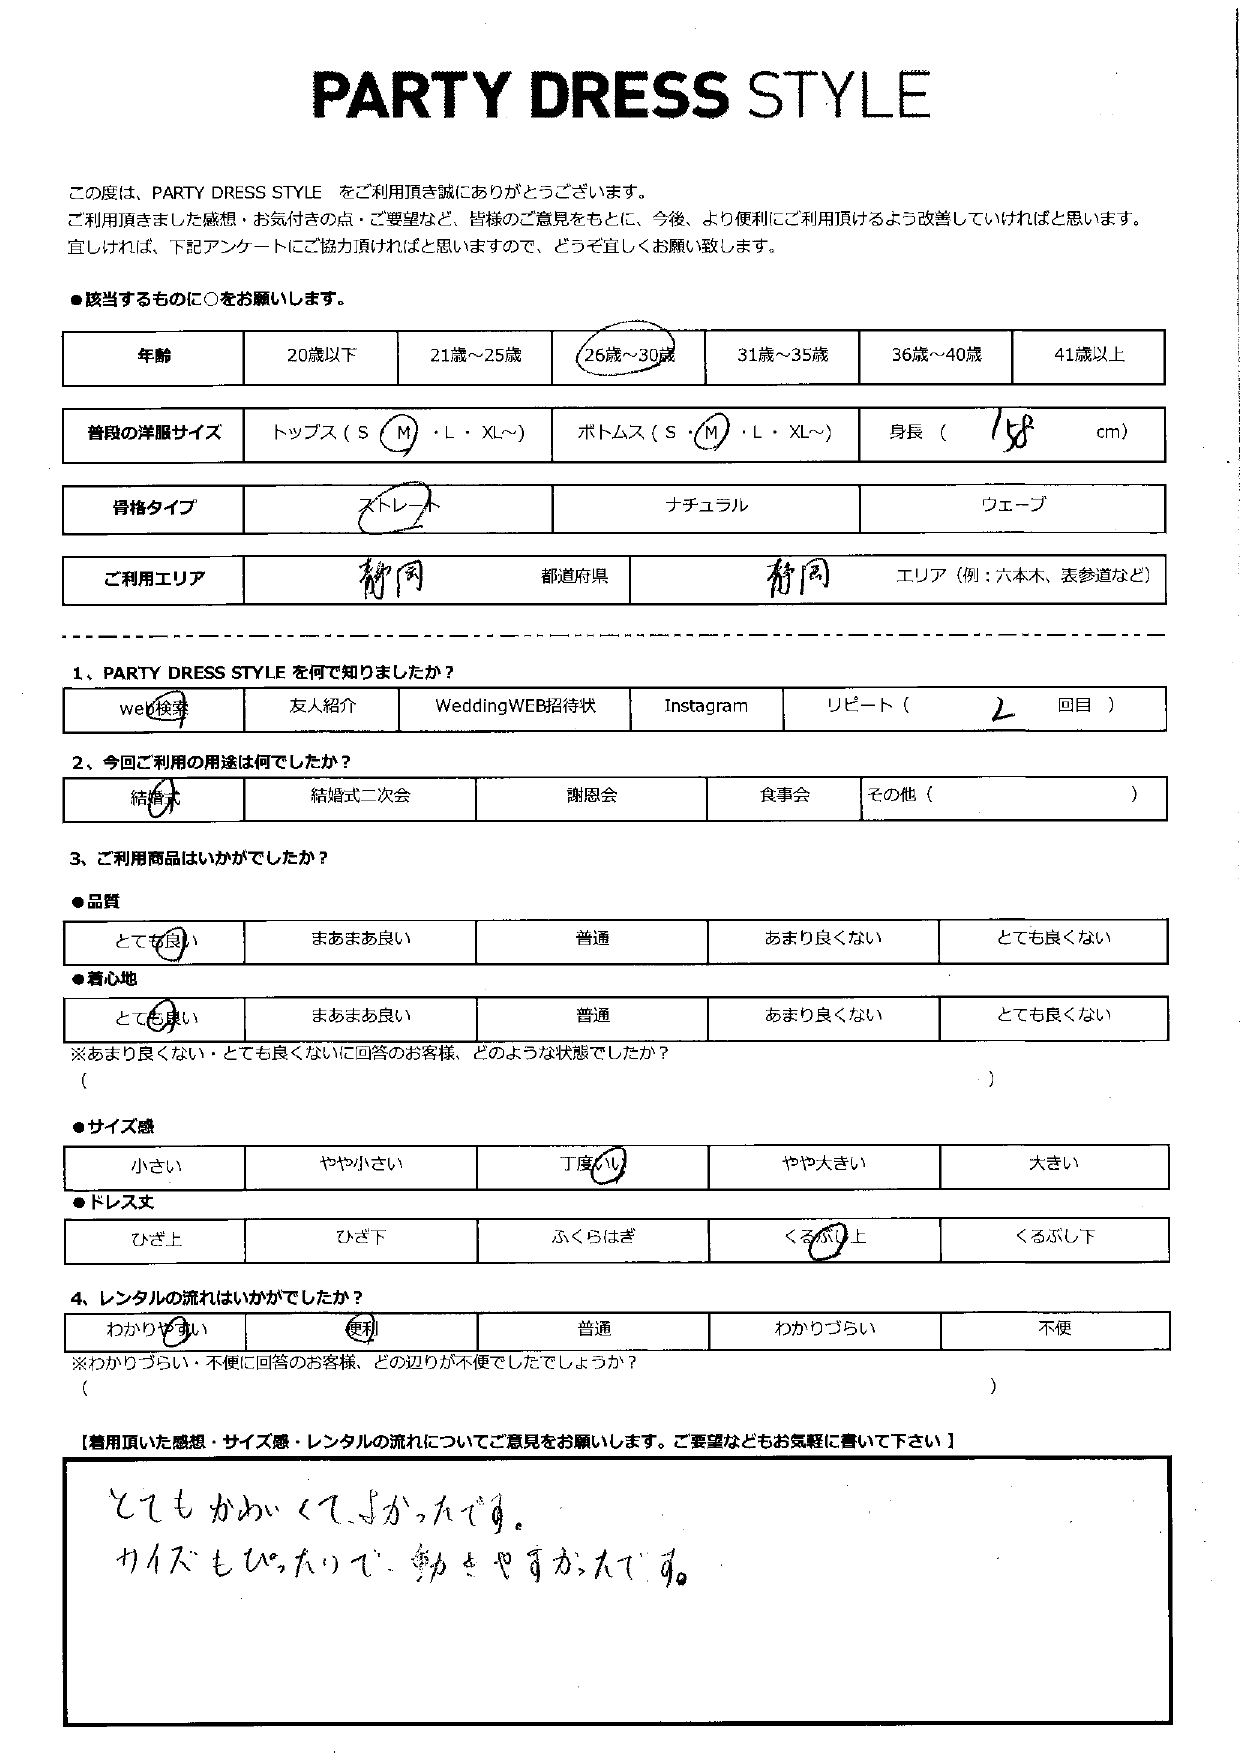 PARTY DRESS STYLE
この度は、PARTY DRESS STYLE　をご利用頂き誠にありがとうございます。
ご利用頂きました感想・お気付きの点・ご要望など、皆様のご意見をもとに、今後、より便利にご利用頂けるよう改善していければと思います。
宜しければ、下記アンケートにご協力頂ければと思いますので、どうぞ宜しくお願い致します。
●該当するものに○をお願いします。
年齢 20歳以下 21歳～25歳 26歳～30歳 31歳～35歳 36歳～40歳 41歳以上
普段の洋服サイズ トップス ( S ・ M ・L ・ XL～) ボトムス ( S ・ M ・L ・ XL～) 身長 ( 158 cm)
骨格タイプ ストレート ナチュラル ウェーブ
ご利用エリア 静岡 都道府県 静岡 エリア（例：六本木、表参道など）
1、PARTY DRESS STYLE を何で知りましたか？
web検索 友人紹介 WeddingWEB招待状 Instagram リピート（ 2 回目 ）
2、今回ご利用の用途は何でしたか？
結婚式 結婚式二次会 謝恩会 食事会 その他（ ）
3、ご利用商品はいかがでしたか？
●品質
とても良い まあまあ良い 普通 あまり良くない とても良くない
●着心地
とても良い まあまあ良い 普通 あまり良くない とても良くない
※あまり良くない・とても良くないに回答のお客様、どのような状態でしたか？
（ ）
●サイズ感
小さい やや小さい 丁度いい やや大きい 大きい
●ドレス丈
ひざ上 ひざ下 ふくらはぎ くるぶし上 くるぶし下
4、レンタルの流れはいかがでしたか？
わかりやすい 便利 普通 わかりづらい 不便
※わかりづらい・不便に回答のお客様、どの辺りが不便でしたでしょうか？
（ ）
【着用頂いた感想・サイズ感・レンタルの流れについてご意見をお願いします。ご要望などもお気軽に書いて下さい 】
とてもかわいくて、よかったです。
サイズもぴったりで、動きやすかったです。